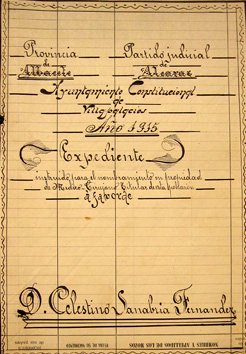 Provincia
de
Albacete
Partido judicial
de
Alcaraz
Ayuntamiento Constitucional
de
Villapalacios
Año 1915
Expediente
instruido para el nombramiento en propiedad
de Médico-Cirujano Titular de esta población
á favor de
D. Celestino Sanabria Fernandez
NOMBRES Y APELLIDOS DE LOS MOZOS